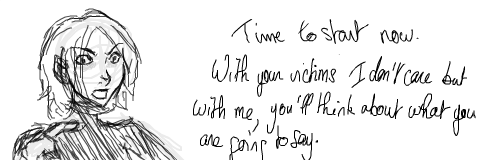 Time to start now.
With your victims I don't care but
with me, you'll think about what you
are going to say.